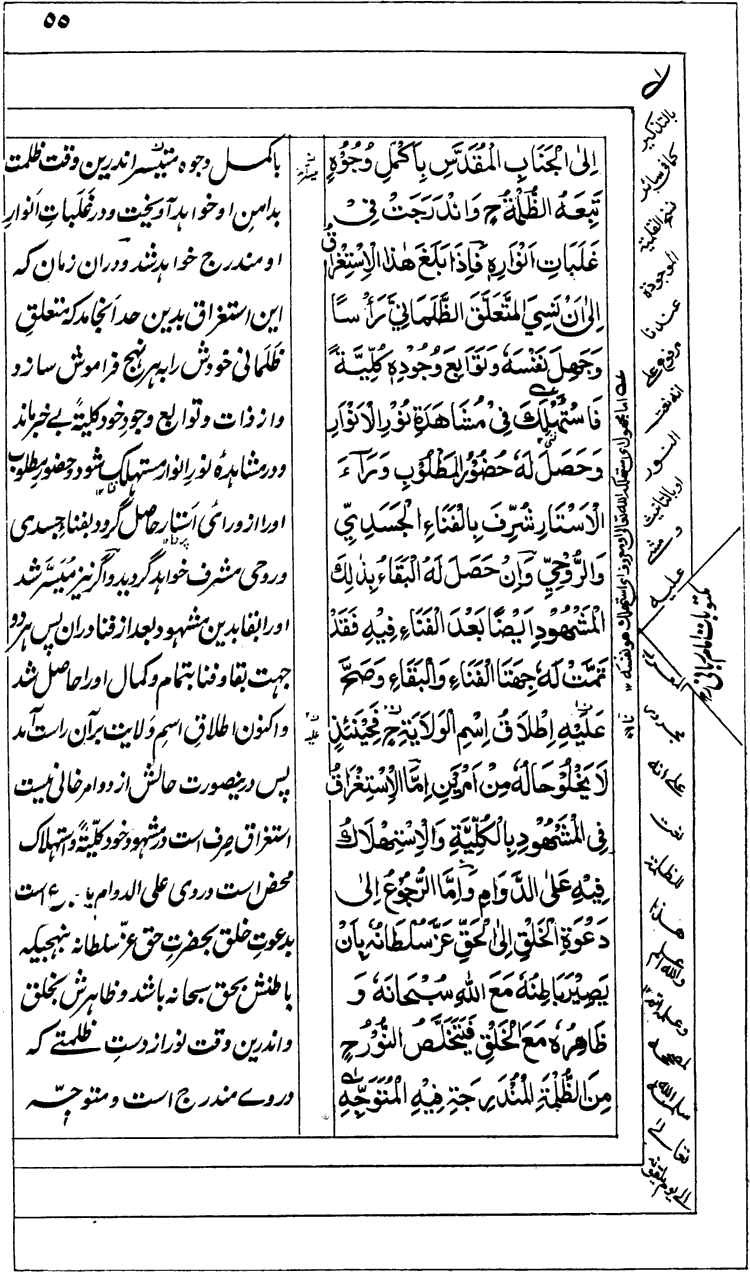 ۵۵
اِلَى الْجَنَابِ الْمُقَدَّسِ بِاَكْمَلِ وُجُوْهٍ
تَبِعَهُ الظُّلْمَةُ ح وَانْدَرَجَتْ فِىْ
غَلَبَاتِ اَنْوَارِهٖ فَاِذَا بَلَغَ هٰذَا الْاِسْتِغْرَاقُ
اِلٰى اَنْ نَسِىَ الْمُتَعَلَّقَ الظُّلْمَانِىَّ رَاْسًا
وَجَهِلَ نَفْسَهٗ وَتَوَابِعَ وُجُوْدِهٖ كُلِّيَّةً
فَاسْتُهْلِكَ فِىْ مُشَاهَدَةِ نُوْرِ الْاَنْوَارِ
وَحَصَلَ لَهٗ حُضُوْرُ الْمَطْلُوْبِ وَرَاءَ
الْاَسْتَارِ شُرِّفَ بِالْفَنَاءِ الْجَسَدِيِّ
وَالرُّوْحِيِّ وَاِنْ حَصَلَ لَهُ الْبَقَاءُ بِذٰلِكَ
الْمَشْهُوْدِ اَيْضًا بَعْدَ الْفَنَاءِ فِيْهِ فَقَدْ
تَمَّتْ لَهٗ جِهَتَا الْفَنَاءِ وَالْبَقَاءِ وَصَحَّ
عَلَيْهِ اِطْلَاقُ اِسْمِ الْوَلَايَةِ ح فَحِيْنَئِذٍ
لَا يَخْلُوْ حَالُهٗ مِنْ اَمْرَيْنِ اِمَّا الْاِسْتِغْرَاقُ
فِى الْمَشْهُوْدِ بِالْكُلِّيَّةِ وَالْاِسْتِهْلَاكُ
فِيْهِ عَلَى الدَّوَامِ وَاِمَّا الرُّجُوْعُ اِلٰى
دَعْوَةِ الْخَلْقِ اِلَى الْحَقِّ عَزَّ سُلْطَانُهٗ بِاَنْ
يَصِيْرَ بَاطِنُهٗ مَعَ اللّٰهِ سُبْحَانَهٗ وَ
ظَاهِرُهٗ مَعَ الْخَلْقِ فَيَتَخَلَّصُ النُّوْرُ ح
مِنَ الظُّلْمَةِ الْمُنْدَرِجَةِ فِيْهِ الْمُتَوَجِّهِ
باكمل وجوه متیسر اندرین وقت ظلمت
بدامن او خواہد آویخت و در غلبات انوار
او مندرج خواہد شد ودران زمان که
این استغراق بدین حد انجامد که متعلق
ظلمانی خودش را بہر نہج فراموش سازد
واز ذات و توابع وجود خود کلیةً بے خبر ماند
ودر مشاہدۂ نور انوار مستہلک شود و حضور مطلوب
اورا از ورای استار حاصل گردد بفناء جسدی
وروحی مشرف خواہد گردید واگر نیز میسر شد
اورا بقا بدین مشہود بعد از فنا دران پس ہر دو
جہت بقا و فنا بتمام و کمال اورا حاصل شد
واکنون اطلاق اسم ولایت برآن راست آمد
پس درینصورت حالش از دو امر خالی نیست
استغراق صرف است در مشہود خود کلیةً واستہلاک
محض است در وی علی الدوام یا رجوع است
بدعوت خلق بحضرت حق عز سلطانہ بنہجیکہ
باطنش بحق سبحانہ باشد و ظاہرش بخلق
واندرین وقت نور از دست ظلمتے که
در وے مندرج است و متوجہ
بالتذكير
كما فى سائر
نسخ القلمية
الموجودة
عندنا
مرفوع على
انه نعت
النور
او بالتانيث
علىٰ انه
نعت
للظلمة
هذا
والله اعلم
وعلمه اتم
لمصححه
سلمه الله
تعالىٰ
الىٰ يوم يلقونه
مکتوبات امام ربانی